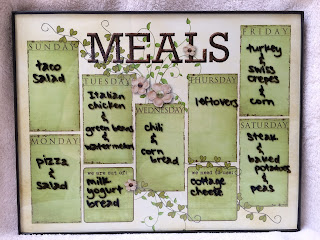 MEALS
SUNDAY
taco
salad
MONDAY
pizza
&
salad
TUESDAY
Italian
chicken
&
green beans
&
watermelon
we are out of:
milk
yogurt
bread
WEDNESDAY
chili
&
corn
bread
THURSDAY
leftovers
we need to use:
cottage
cheese
FRIDAY
turkey
&
swiss
crepes
&
corn
SATURDAY
steak
&
baked
potatoes
&
peas